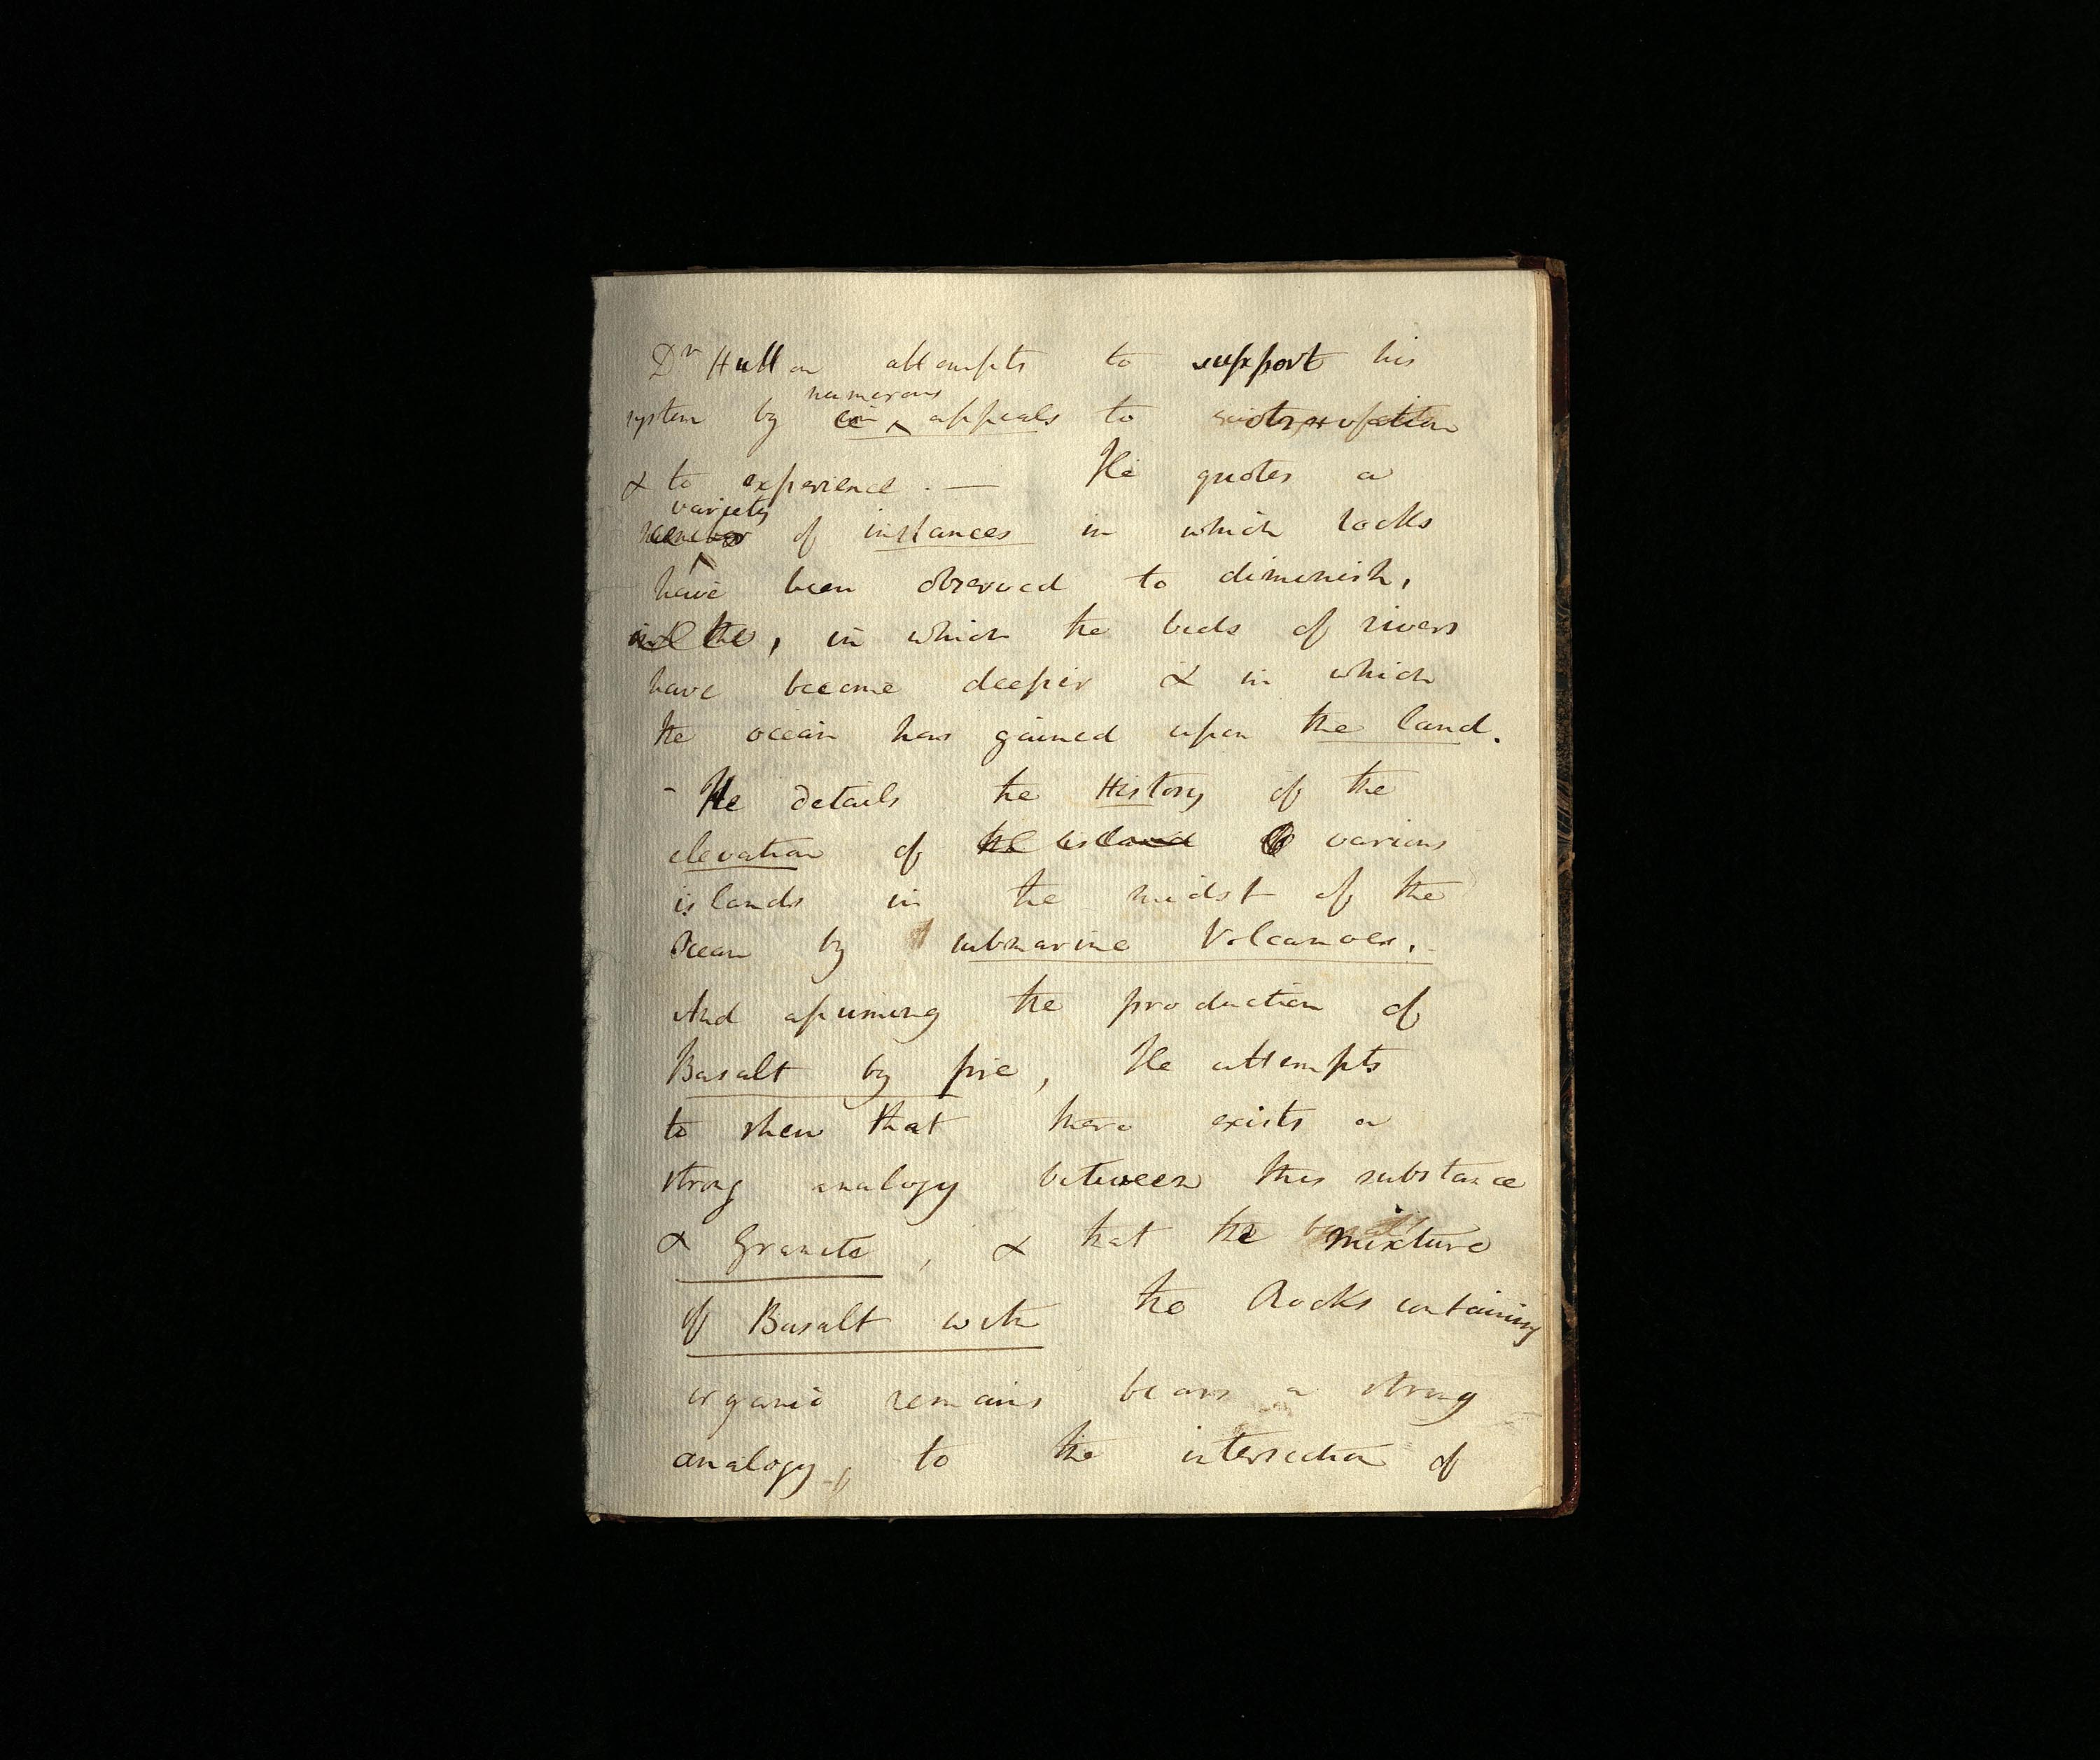 Dr Hutton attempts to support his
system by numerous appeals to observation
& to experience. — He quotes a
variety of instances in which rocks
have been observed to diminish,
and the, in which the beds of rivers
have become deeper & in which
the ocean has gained upon the land.
- He details the History of the
elevation of the island various
islands in the midst of the
ocean by submarine Volcanoes.
And assuming the production of
Basalt by fire, He attempts
to shew that there exists a
strong analogy between this substance
& Granite, & that the mixture
of Basalt with the Rocks containing
organic remains bears a strong
analogy, to the intersection of